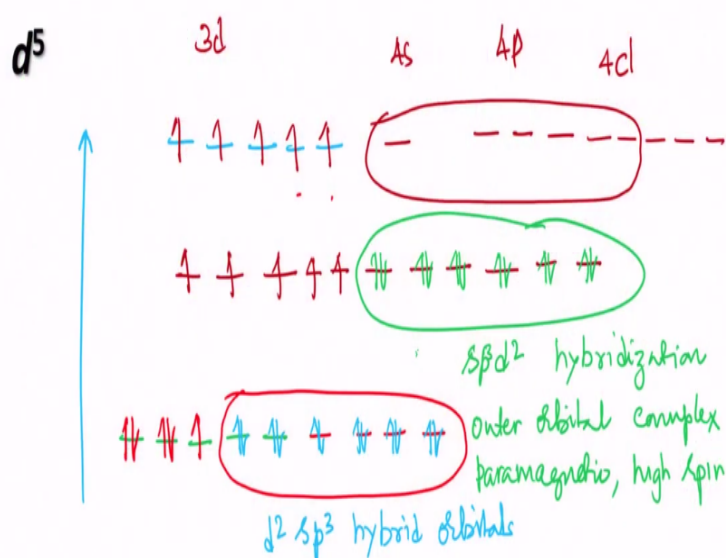 d5
3d 4s 4p 4d
sp3d2 hybridization
outer orbital complex
paramagnetic, high spin
d2 sp3 hybrid orbitals